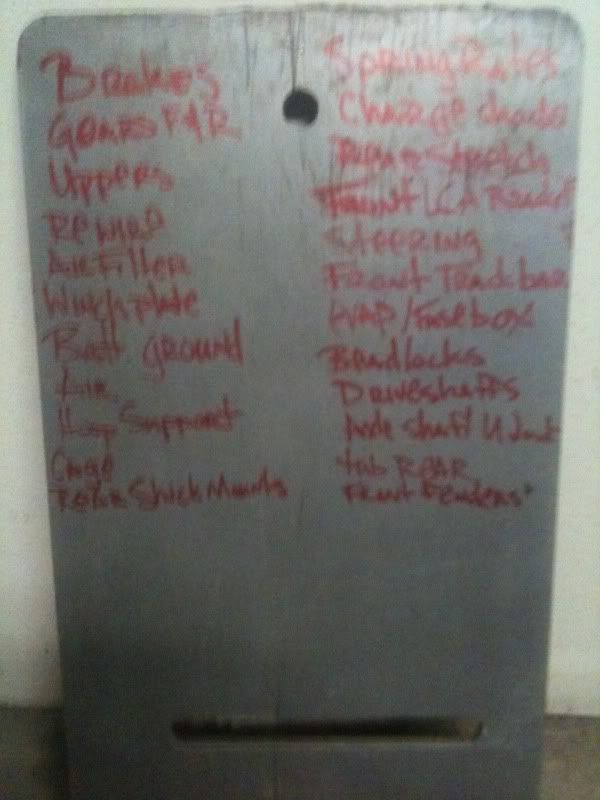 Brakes
Gears F&R
Uppers
Rewire
Air Filter
Winch plate
Batt. ground
Air
Support
Cage
Rear Shock Mounts
Spring Rates
Change
Rear Stretch
Front LCA
Steering
Front Trackbar
EVAP/Fusebox
Beadlocks
Driveshafts
Axle shaft U
tub REAR
Front Fenders